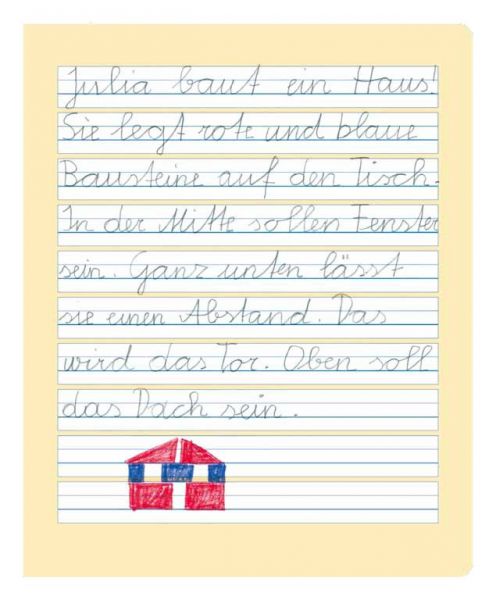 Julia baut ein Haus!
Sie legt rote und blaue
Bausteine auf den Tisch.
In der Mitte sollen Fenster
sein. Ganz unten lässt
sie einen Abstand. Das
wird das Tor. Oben soll
das Dach sein.